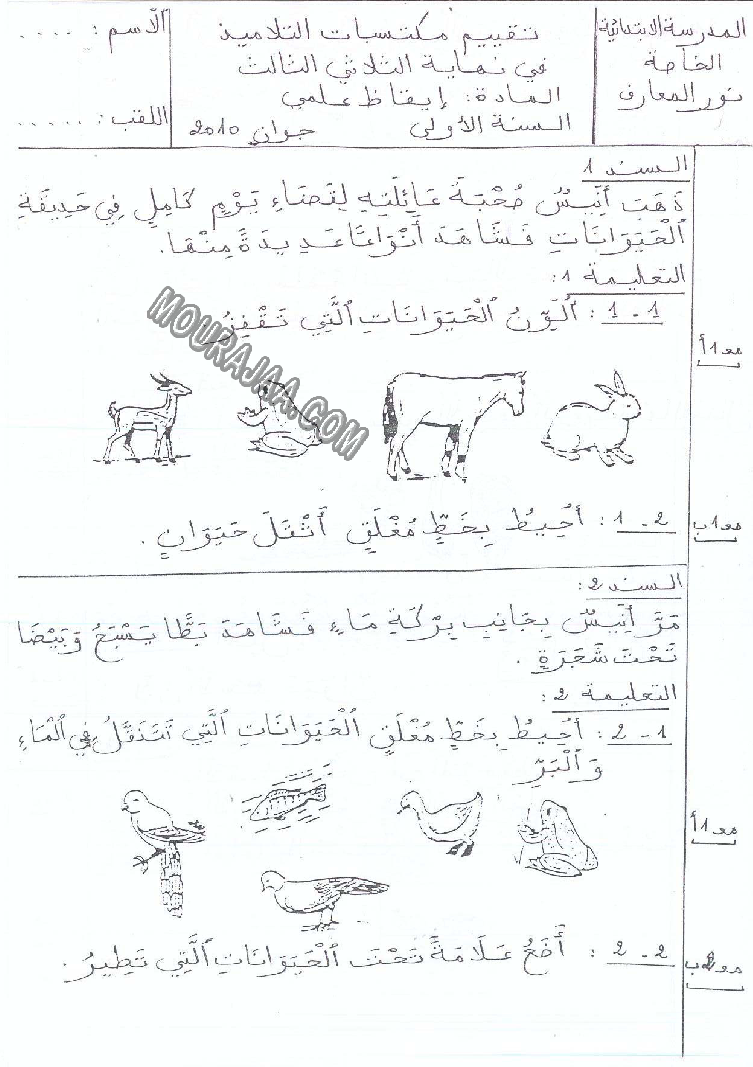 المدرسة الابتدائية
الخاصة
نور المعارف
تقييم مكتسبات التلاميذ
في نهاية الثلاثي الثالث
المادة: إيقاظ علمي
السنة الأولى جوان 2010
الاسم: ....
اللقب: .....
السند 1
ذَهَبَ أَنِيسُ صُحْبَةَ عَائِلَتِهِ لِقَضَاءِ يَوْمٍ كَامِلٍ فِي حَدِيقَةِ
ٱلْحَيَوَانَاتِ فَشَاهَدَ أَنْوَاعًا عَدِيدَةً مِنْهَا.
التعليمة 1:
1 - 1 : أُلَوِّنُ ٱلْحَيَوَانَاتِ ٱلَّتِي تَقْفِزُ.
مع 1 أ
MOURAJAA.COM
2 - 1 : أُحِيطُ بِخَطٍّ مُغْلَقٍ أَثْقَلَ حَيَوَانٍ.
مع 1 ب
السند 2:
مَرَّ أَنِيسُ بِجَانِبِ بِرْكَةِ مَاءٍ فَشَاهَدَ بَطًّا يَسْبَحُ وَبَيْضًا
تَحْتَ شَجَرَةٍ.
التعليمة 2:
1 - 2 : أُحِيطُ بِخَطٍّ مُغْلَقٍ ٱلْحَيَوَانَاتِ ٱلَّتِي تَتَنَقَّلُ فِي ٱلْمَاءِ
وَ ٱلْبَرِّ
مع 1 أ
2 - 2 : أَضَعُ عَلَامَةً تَحْتَ ٱلْحَيَوَانَاتِ ٱلَّتِي تَطِيرُ.
مع 2 ب